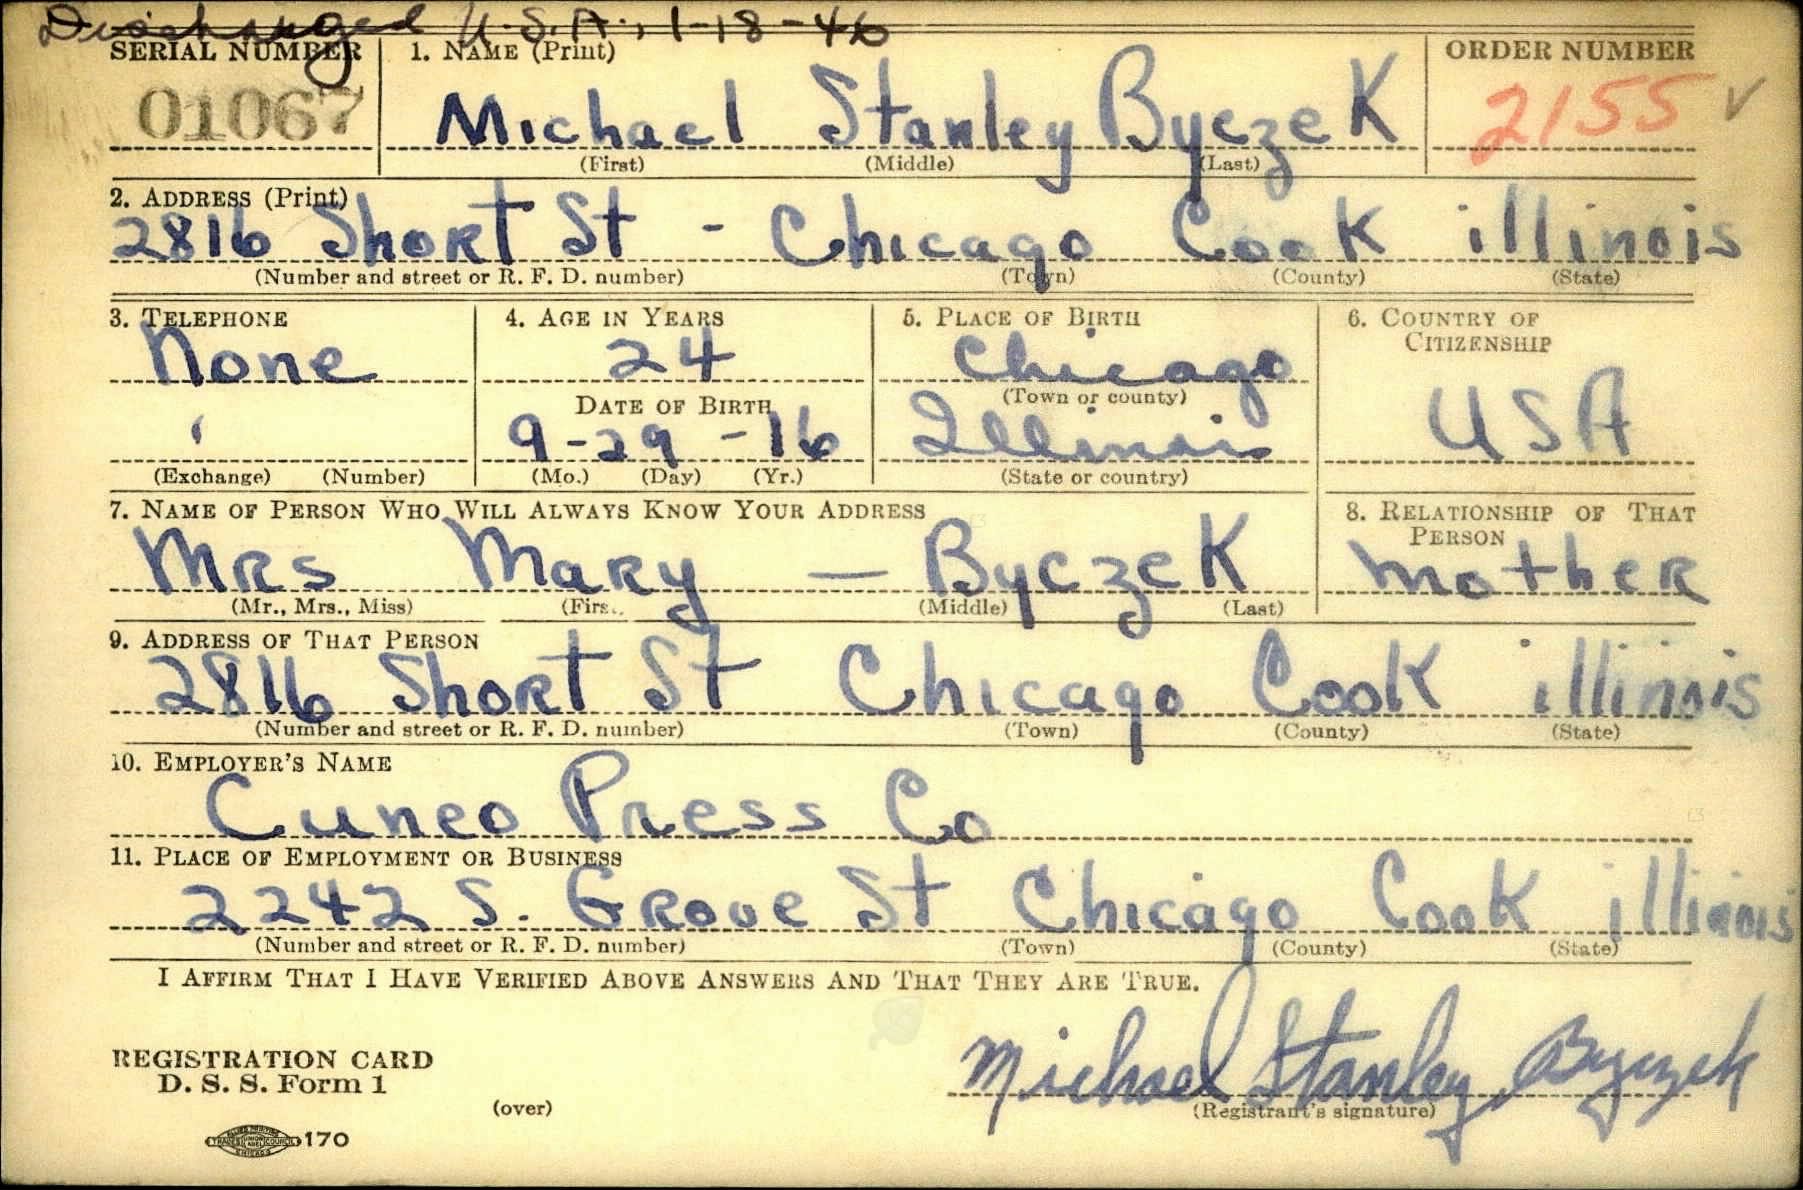 Discharged U.S.A., 1-18-46
SERIAL NUMBER 1. NAME (Print) ORDER NUMBER
01067 Michael Stanley Byczek 2155 √
(First) (Middle) (Last)
2. ADDRESS (Print)
2816 Short St - Chicago Cook illinois
(Number and street or R. F. D. number) (Town) (County) (State)
3. TELEPHONE 4. AGE IN YEARS 5. PLACE OF BIRTH 6. COUNTRY OF
CITIZENSHIP
None 24 Chicago
DATE OF BIRTH (Town or county)
9-29-16 Illinois USA
(Exchange) (Number) (Mo.) (Day) (Yr.) (State or country)
7. NAME OF PERSON WHO WILL ALWAYS KNOW YOUR ADDRESS 8. RELATIONSHIP OF THAT
PERSON
Mrs Mary — Byczek mother
(Mr., Mrs., Miss) (First) (Middle) (Last)
9. ADDRESS OF THAT PERSON
2816 Short St Chicago Cook illinois
(Number and street or R. F. D. number) (Town) (County) (State)
10. EMPLOYER'S NAME
Cuneo Press Co
11. PLACE OF EMPLOYMENT OR BUSINESS
2242 S. Grove St Chicago Cook illinois
(Number and street or R. F. D. number) (Town) (County) (State)
I AFFIRM THAT I HAVE VERIFIED ABOVE ANSWERS AND THAT THEY ARE TRUE.
REGISTRATION CARD
D. S. S. Form 1 Michael Stanley Byczek
(over) (Registrant's signature)
170